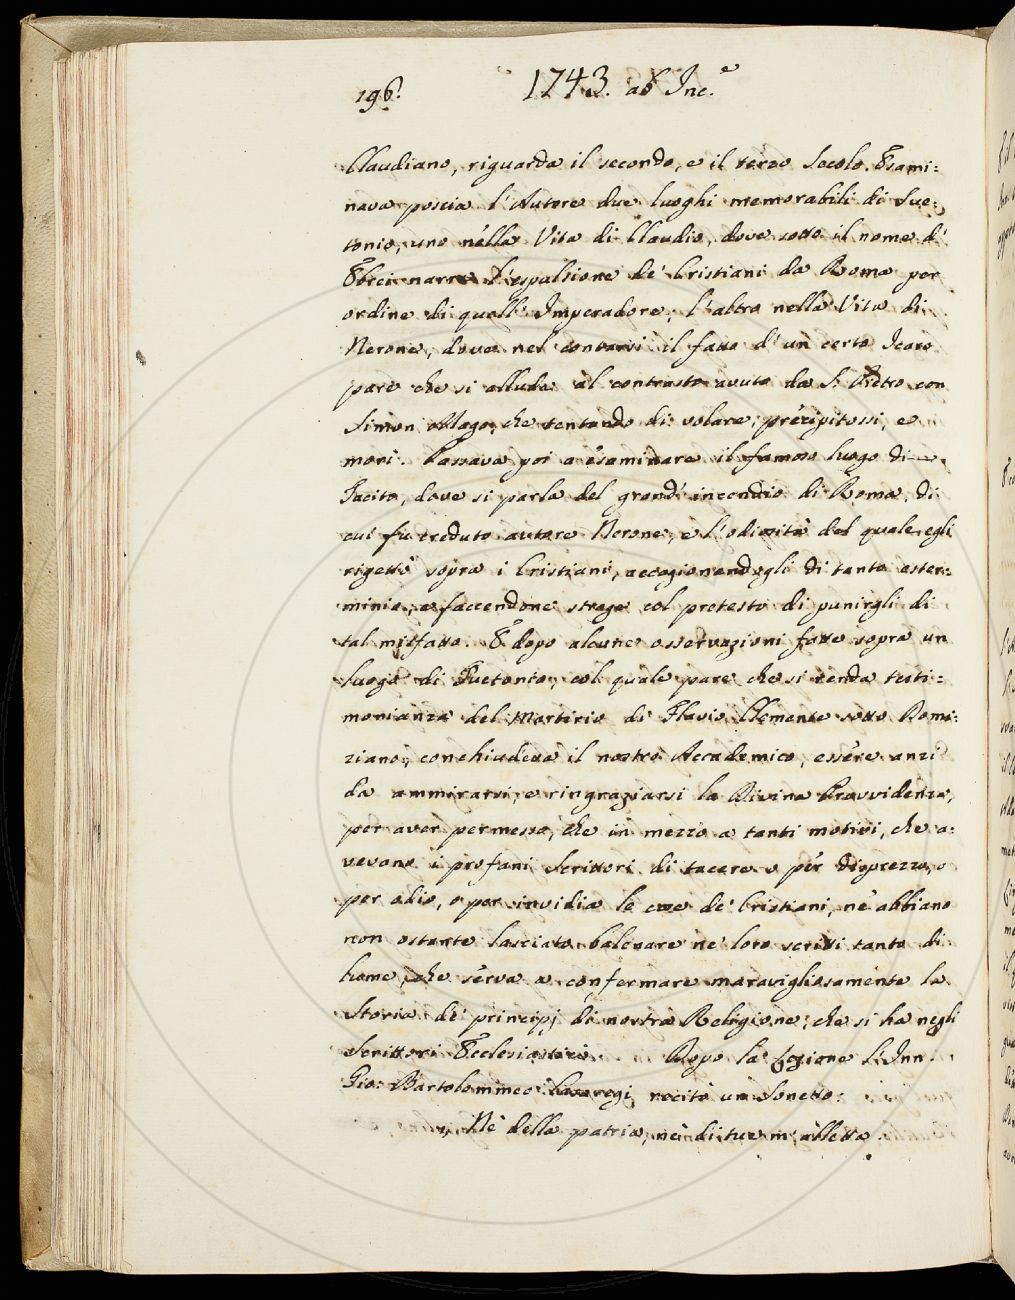 196. 1743. ab Inc.e
Claudiano, riguarda il secondo, e il terzo Secolo. Esami=
nava poscia l'Autore due luoghi memorabili di Sue=
tonio, uno nella Vita di Claudio, dove sotto il nome d'
Ebrei narra l'espulsione de' Cristiani da Roma per
ordine di quell'Imperadore; l'altro nella Vita di
Nerone, dove nel contarsi il fatto d'un certo Icaro
pare che si alluda al contrasto avuto da S. Pietro con
Simon Mago, che tentando di volare, precipitossi, e
morì. Passava poi a esaminare il famoso luogo di
Tacito, dove si parla del grand'incendio di Roma, di
cui fu creduto autore Nerone, e l'odiosità del quale egli
rigettò sopra i Cristiani, accagionandogli di tanto ester=
minio, e faccendone strage col pretesto di punirgli di
tal misfatto. E dopo alcune osservazioni fatte sopra un
luogo di Suetonio, col quale pare che si renda testi=
monianza del Martirio di Flavio Clemente sotto Domi=
ziano, conchiudeva il nostro Accademico, essere anzi
da ammirarsi, e ringraziarsi la Divina Provvidenza,
per aver permesso, che in mezzo a tanti motivi, che a=
vevano i profani Scrittori di tacere o per disprezzo, o
per odio, o per invidia le cose de' Cristiani, nè abbiano
non ostante lasciato balenare ne' loro scritti tanto di
lume, che serva a confermare maravigliosamente la
Storia de' principj di nostra Religione, che si ha negli
Scrittori Ecclesiastici. Dopo la Lezione l'Inn.
Gio: Bartolommeo Casaregi recitò un Sonetto:
Nè della patria, nè di tue m'alletta.